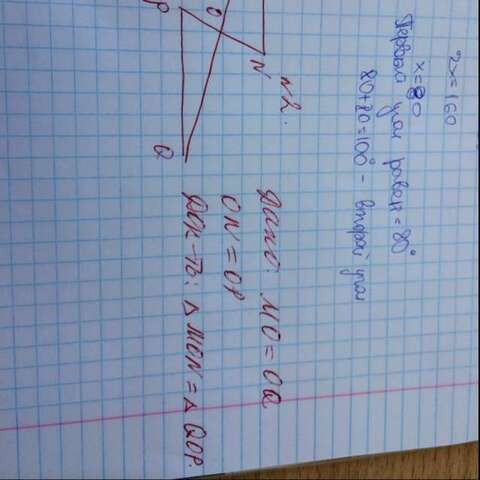 2x = 160
x = 80
Первый угол равен = 80°
80+20=100° - второй угол
N2.
N
O
P
Q
Дано: MO = OQ
ON = OP
Док-ть: △ MON = △ QOP.